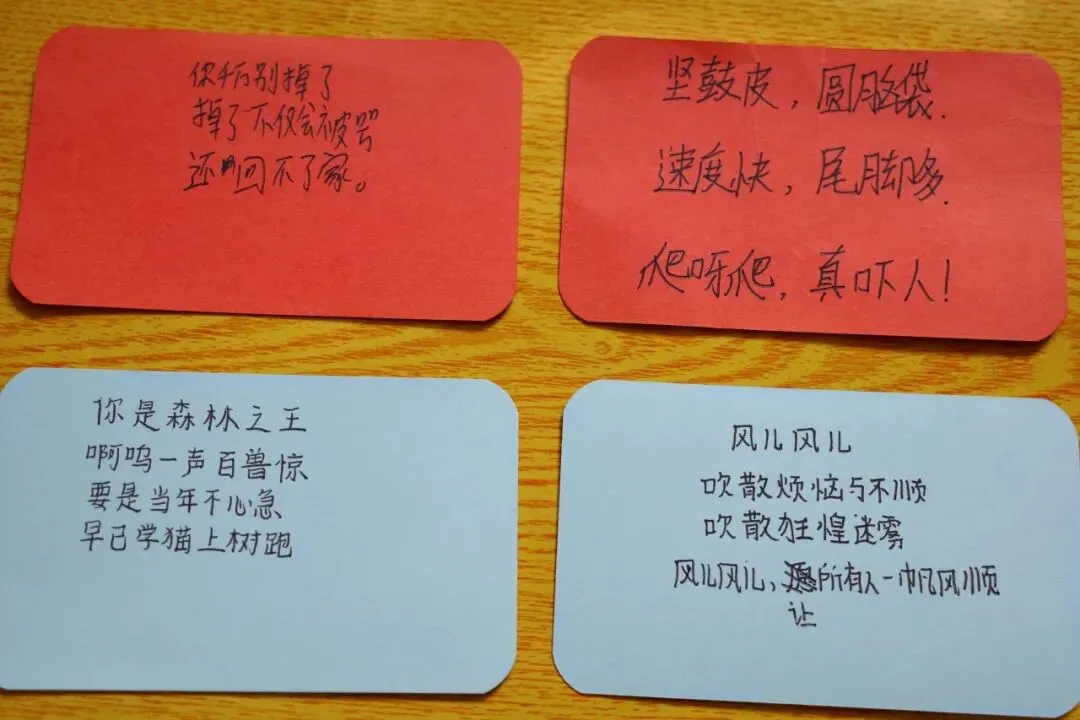 你千万别掉了
掉了不仅会被骂
还回不了家。
坚鼓皮，圆脑袋.
速度快，尾脚哆.
爬呀爬，真吓人！
你是森林之王
啊呜一声百兽惊
要是当年不心急
早已学猫上树跑
风儿风儿
吹散烦恼与不顺
吹散狂惶迷雾
风儿风儿，让所有人一帆风顺